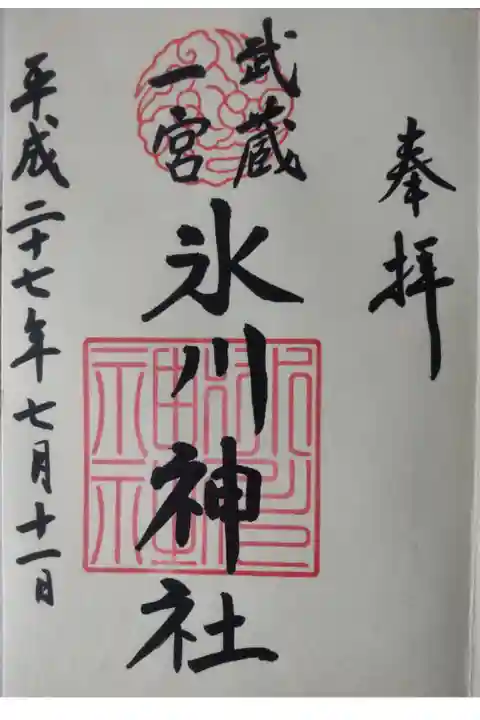 奉拝
武蔵
一宮
氷川神社
平成二十七年七月十一日
氷川
神社